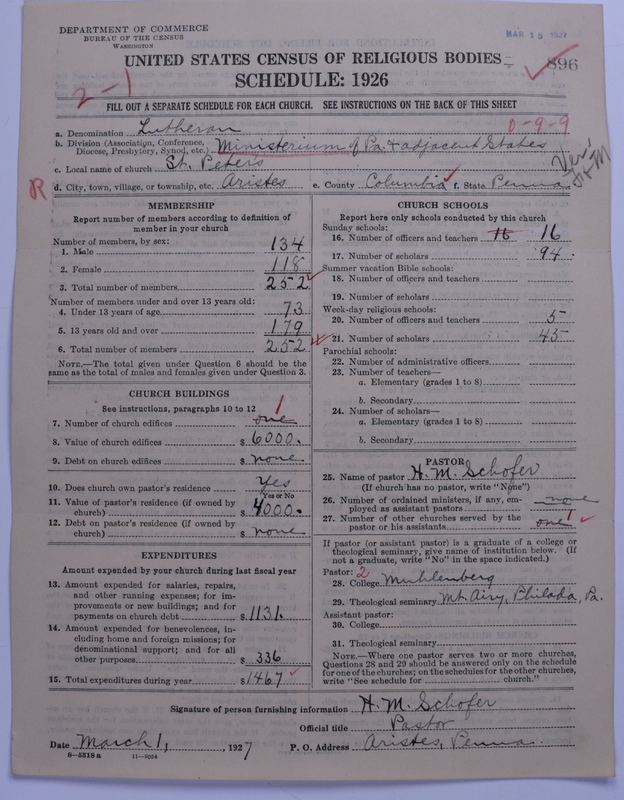 DEPARTMENT OF COMMERCE
BUREAU OF THE CENSUS
WASHINGTON
MAR 15 1927
UNITED STATES CENSUS OF RELIGIOUS BODIES
896
SCHEDULE: 1926
2-1
FILL OUT A SEPARATE SCHEDULE FOR EACH CHURCH. SEE INSTRUCTIONS ON THE BACK OF THIS SHEET
0-9-9
a. Denomination Lutheran
b. Division (Association, Conference, Diocese, Presbytery, Synod, etc.) Ministerium of Pa. & adjacent States
c. Local name of church St. Peter's
Ver. H M
R
d. City, town, village, or township, etc. Aristes e. County Columbia f. State Penna.
MEMBERSHIP
Report number of members according to definition of
member in your church
Number of members, by sex:
1. Male 134
2. Female 118
3. Total number of members 252
Number of members under and over 13 years old:
4. Under 13 years of age 73
5. 13 years old and over 179
6. Total number of members 252
NOTE.—The total given under Question 6 should be the
same as the total of males and females given under Question 3.
CHURCH BUILDINGS
See instructions, paragraphs 10 to 12
1
7. Number of church edifices one
8. Value of church edifices $ 6000.
9. Debt on church edifices $ none
10. Does church own pastor's residence Yes
Yes or No
11. Value of pastor's residence (if owned by
church) $ 4000.
12. Debt on pastor's residence (if owned by
church) $ none
EXPENDITURES
Amount expended by your church during last fiscal year
13. Amount expended for salaries, repairs,
and other running expenses; for im-
provements or new buildings; and for
payments on church debt $ 1131.
14. Amount expended for benevolences, in-
cluding home and foreign missions; for
denominational support; and for all
other purposes $ 336
15. Total expenditures during year $ 1467
CHURCH SCHOOLS
Report here only schools conducted by this church
Sunday schools:
16. Number of officers and teachers 16 16
17. Number of scholars 94
Summer vacation Bible schools:
18. Number of officers and teachers
19. Number of scholars
Week-day religious schools:
20. Number of officers and teachers 5
21. Number of scholars 45
Parochial schools:
22. Number of administrative officers
23. Number of teachers—
a. Elementary (grades 1 to 8)
b. Secondary
24. Number of scholars—
a. Elementary (grades 1 to 8)
b. Secondary
PASTOR
25. Name of pastor H. M. Schofer
(If church has no pastor, write "None")
26. Number of ordained ministers, if any, em-
ployed as assistant pastors none
27. Number of other churches served by the
pastor or his assistants one 1
If pastor (or assistant pastor) is a graduate of a college or
theological seminary, give name of institution below. (If
not a graduate, write "No" in the space indicated.)
Pastor: 2
28. College Muhlenberg
29. Theological seminary Mt. Airy, Philada, Pa.
Assistant pastor:
30. College
31. Theological seminary
NOTE.—Where one pastor serves two or more churches,
Questions 28 and 29 should be answered only on the schedule
for one of the churches; on the schedules for the other churches,
write "See schedule for church."
Signature of person furnishing information H. M. Schofer
Official title Pastor
Date March 1, 1927 P. O. Address Aristes, Penna.
8—5518a 11—9034